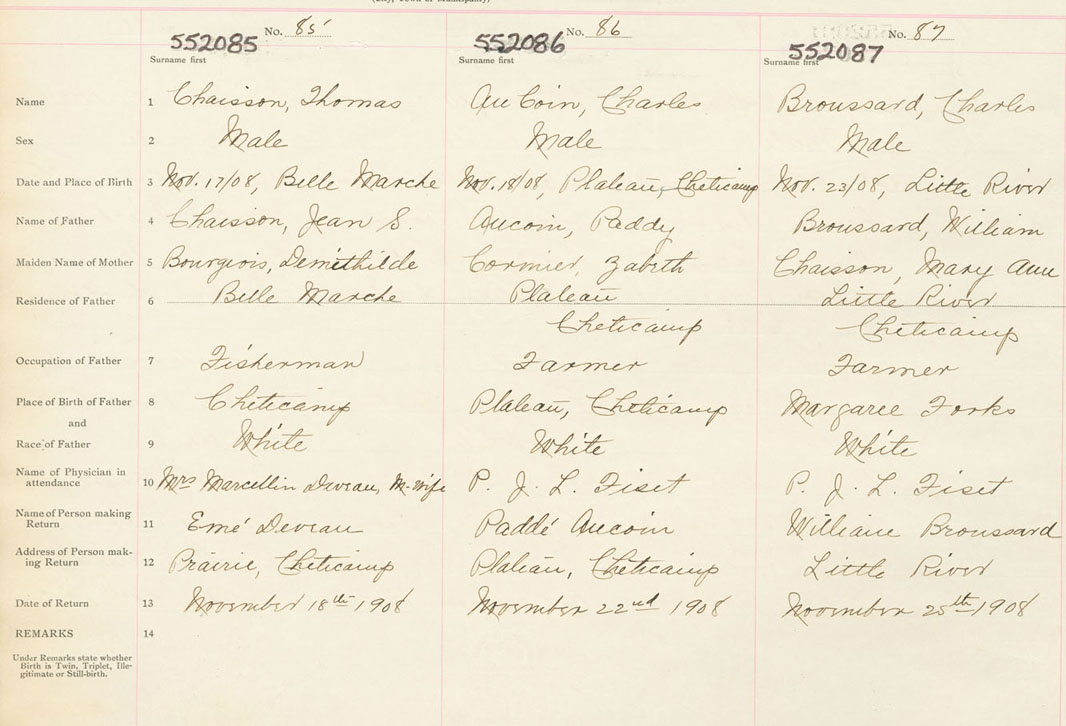 No. 85 No. 86 No. 87
552085 552086 552087
Surname first Surname first Surname first
Name 1 Chaisson, Thomas AuCoin, Charles Broussard, Charles
Sex 2 Male Male Male
Date and Place of Birth 3 Nov. 17/08, Belle Marche Nov. 18/08, Plateau, Cheticamp Nov. 23/08, Little River
Name of Father 4 Chaisson, Jean S. Aucoin, Paddy Broussard, William
Maiden Name of Mother 5 Bourgeois, Demithilde Cormier, Zabeth Chaisson, Mary Ann
Residence of Father 6 Belle Marche Plateau Little River
Cheticamp Cheticamp
Occupation of Father 7 Fisherman Farmer Farmer
Place of Birth of Father 8 Cheticamp Plateau, Cheticamp Margaree Forks
and
Race of Father 9 White White White
Name of Physician in
attendance 10 Mrs Marcellin Deveau, M-wife P. J. L. Fiset P. J. L. Fiset
Name of Person making
Return 11 Emé Deveau Paddé Aucoin William Broussard
Address of Person mak-
ing Return 12 Prairie, Cheticamp Plateau, Cheticamp Little River
Date of Return 13 November 18th 1908 November 22nd 1908 November 25th 1908
REMARKS 14
Under Remarks state whether
Birth is Twin, Triplet, Ille-
gitimate or Still-birth.